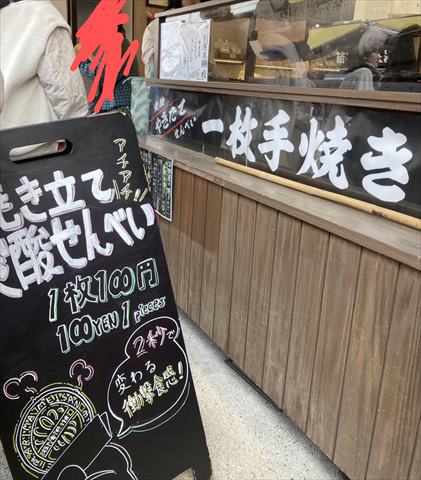 やきたて
せんべい
一枚手焼き
アチアチ!!
焼き立て
炭酸せんべい
1枚100円
100YEN 1 pieces
2秒で
変わる
衝撃食感!